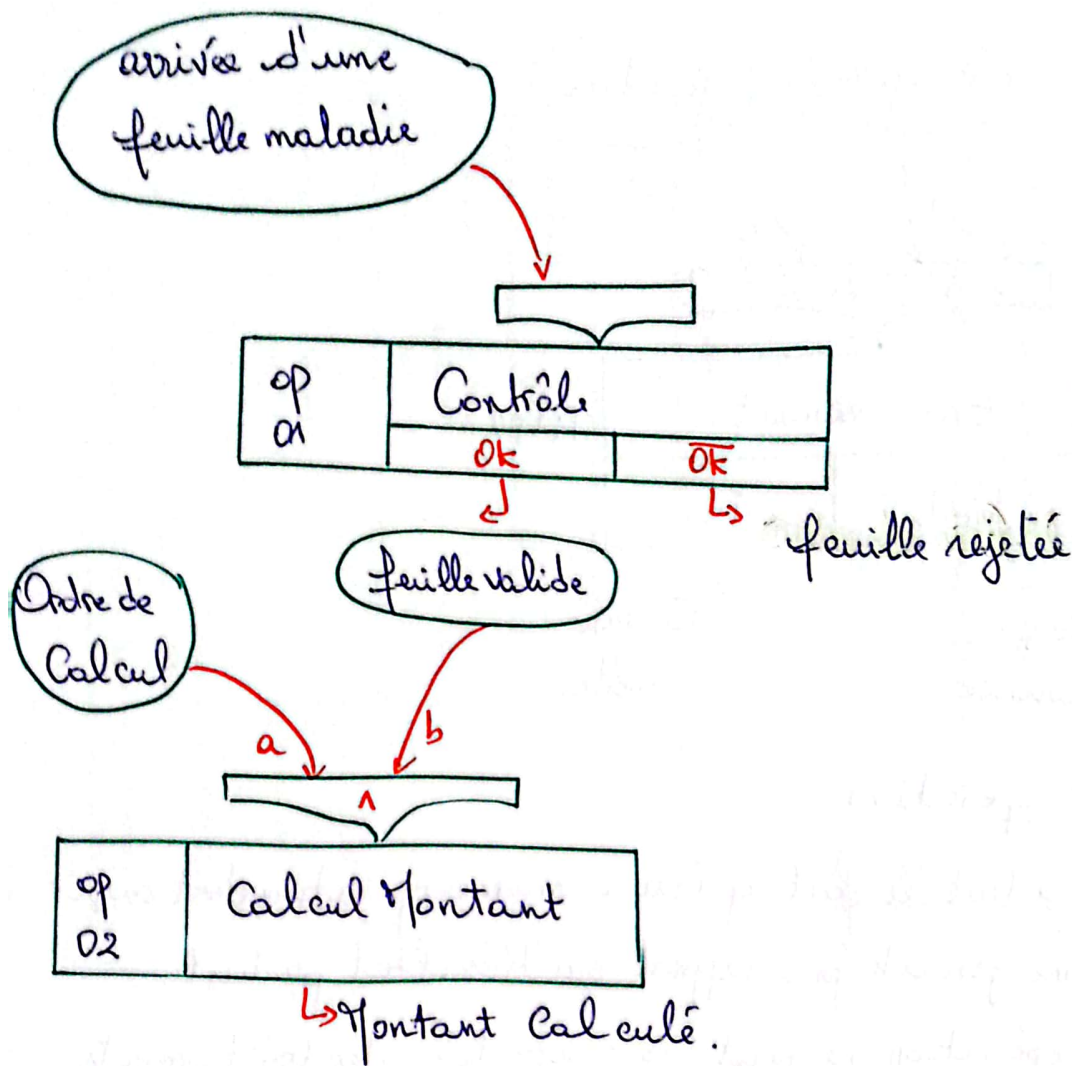 arrivée d'une
feuille maladie
op
01
Contrôle
Ok
O̅k̅
feuille rejetée
Ordre de
Calcul
feuille valide
a
b
∧
op
02
Calcul Montant
Montant Calculé.